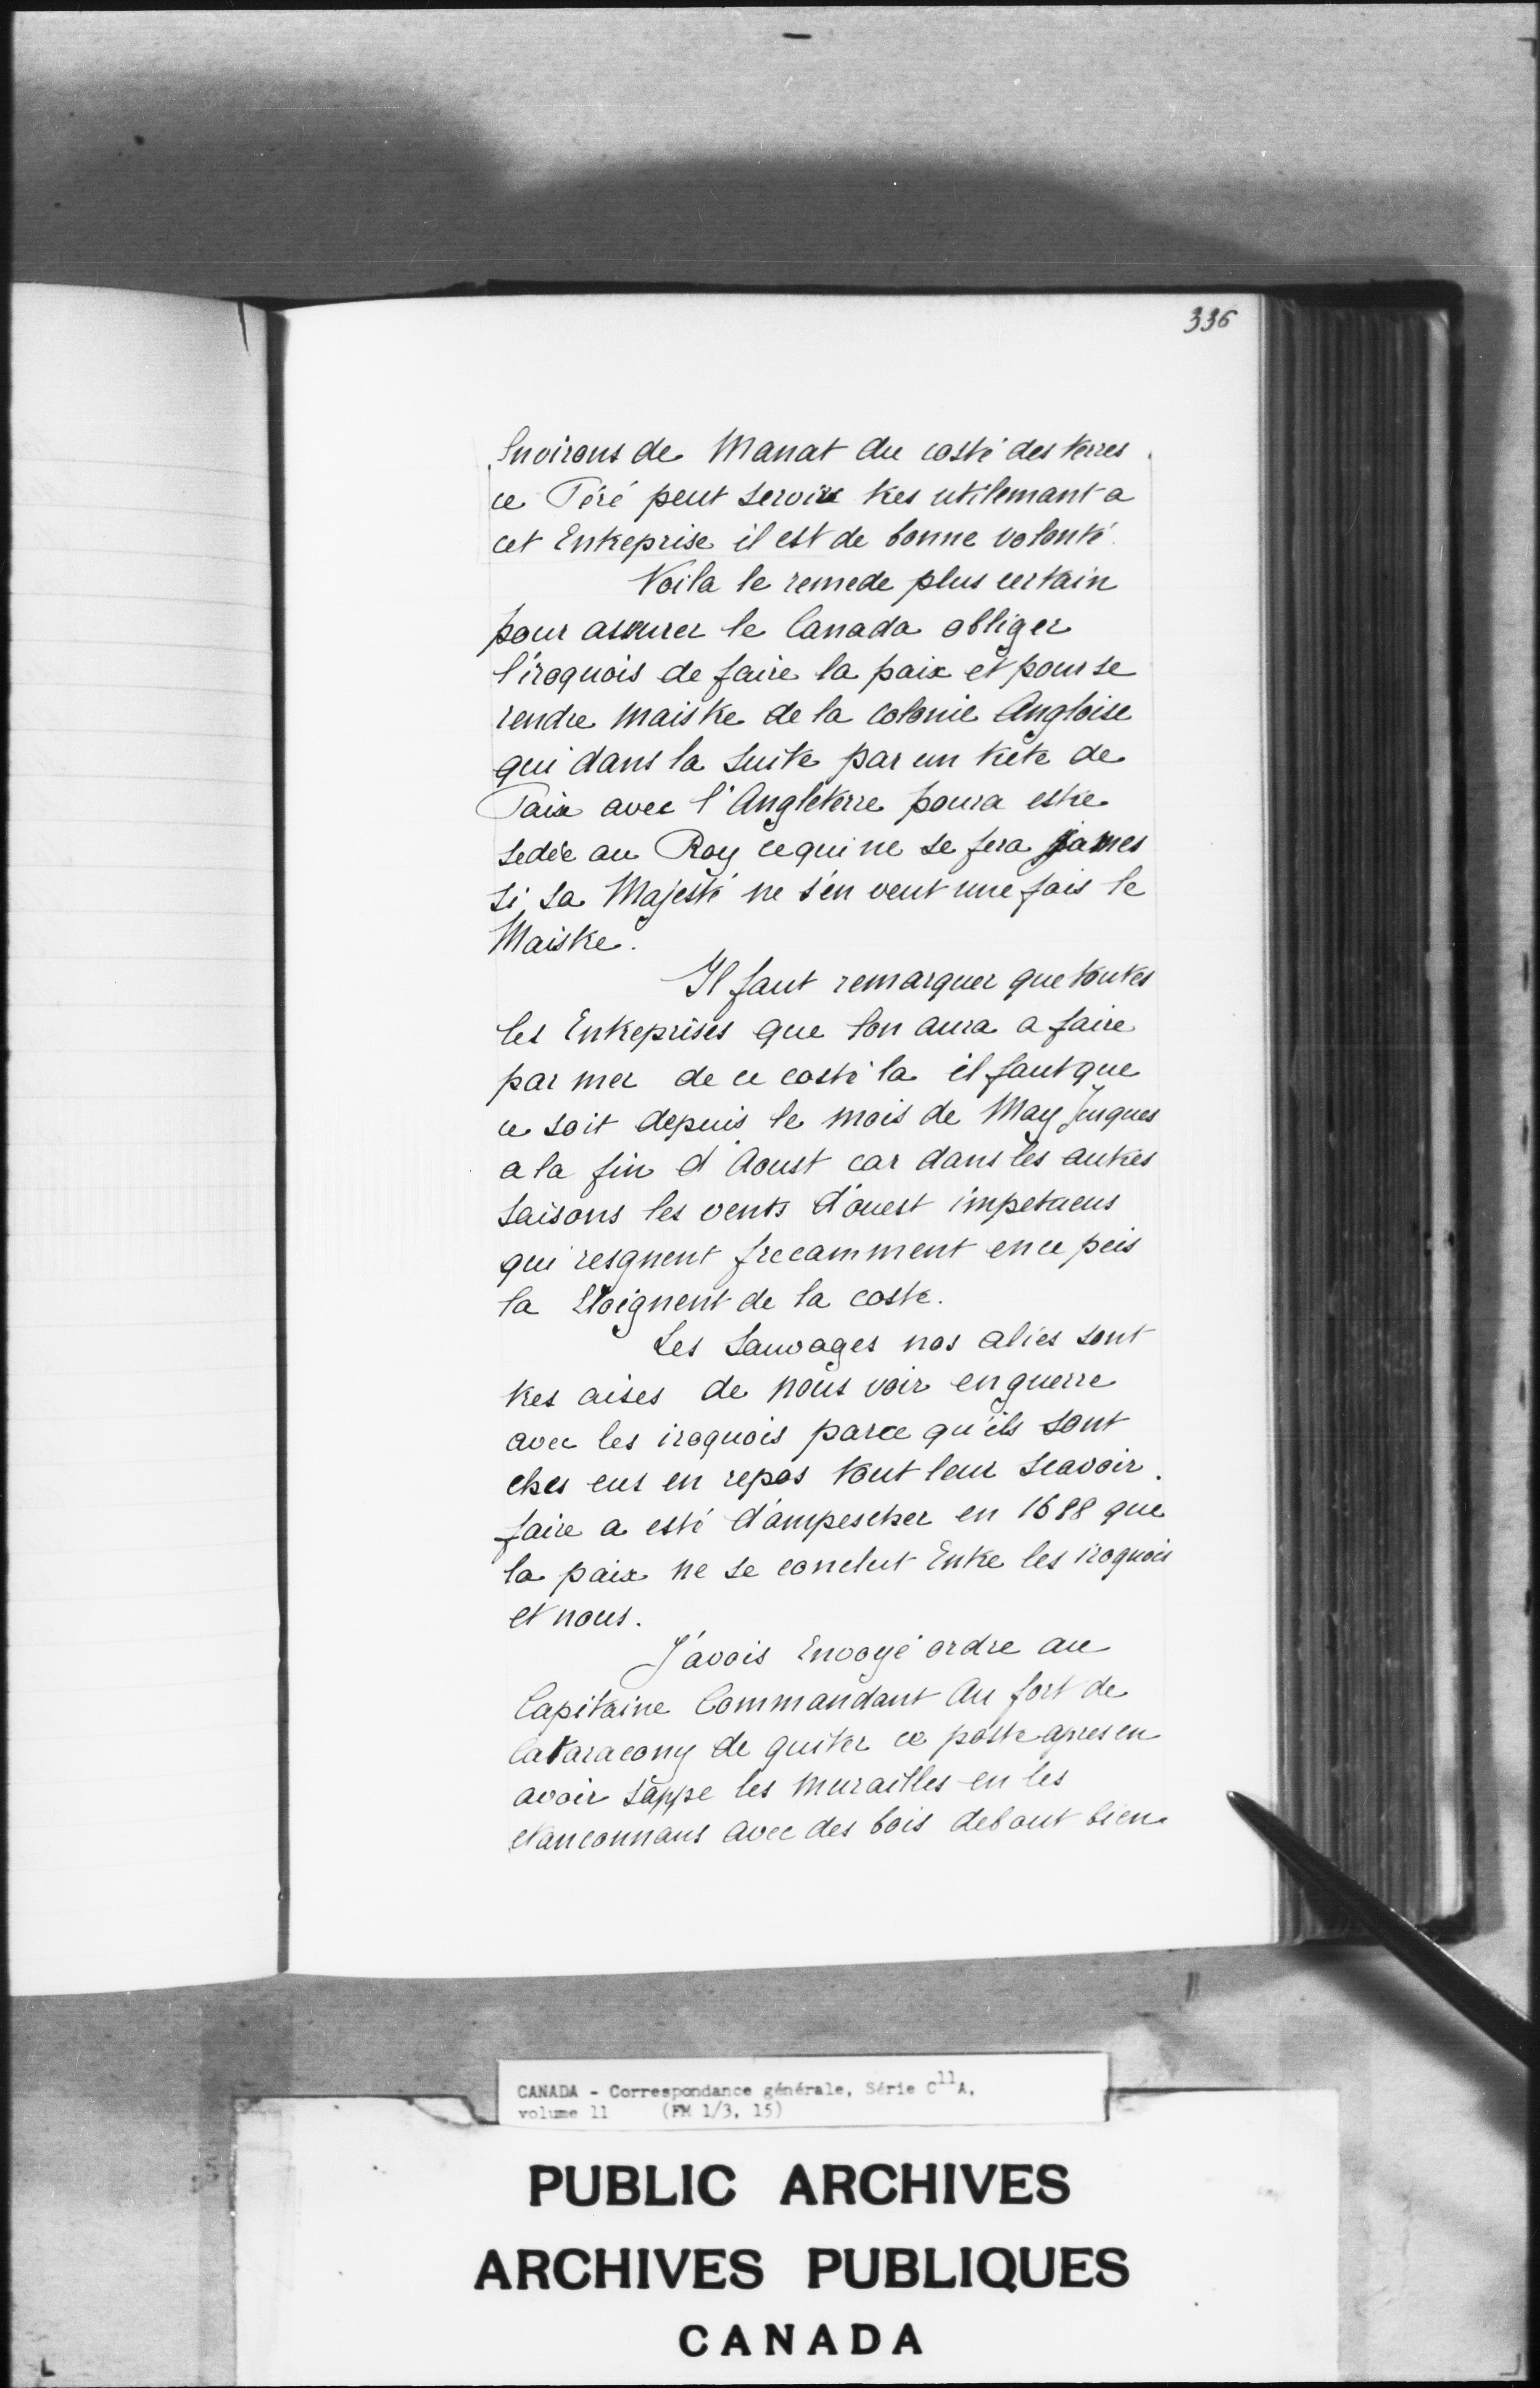 336
Environs de Manat du costé des terres
ce Péré peut servir tres utilemant a
cet Entreprise il est de bonne volonté.
Voila le remede plus certain
pour assurer le Canada obliger
l'iroquois de faire la paix et pour se
rendre maistre de la colonie Angloise
qui dans la suite par un trete de
Paix avec l'Angleterre poura estre
sedée au Roy ce qui ne se fera james
si sa Majesté ne s'en veut une fois le
Maistre.
Il faut remarquer que toutes
les Entreprises que lon aura a faire
par mer de ce costé la il faut que
ce soit depuis le mois de May Jusques
a la fin d'Aoust car dans les autres
saisons les vents d'ouest impetueus
qui resgnent frecamment en ce peis
la Eloignent de la coste.
Les Sauvages nos aliés sont
tres aises de nous voir en guerre
avec les iroquois parce qu'ils sont
ches eus en repos tout leur scavoir
faire a esté d'ampescher en 1688 que
la paix ne se conclut Entre les iroquois
et nous.
J'avois Envoyé ordre au
Capitaine Commandant Au fort de
Cataracony de quiter ce poste apres en
avoir sappe les murailles en les
etanconnans avec des bois debout bien
CANADA - Correspondance générale, Série C11A,
volume 11 (FM 1/3, 15)
PUBLIC ARCHIVES
ARCHIVES PUBLIQUES
CANADA